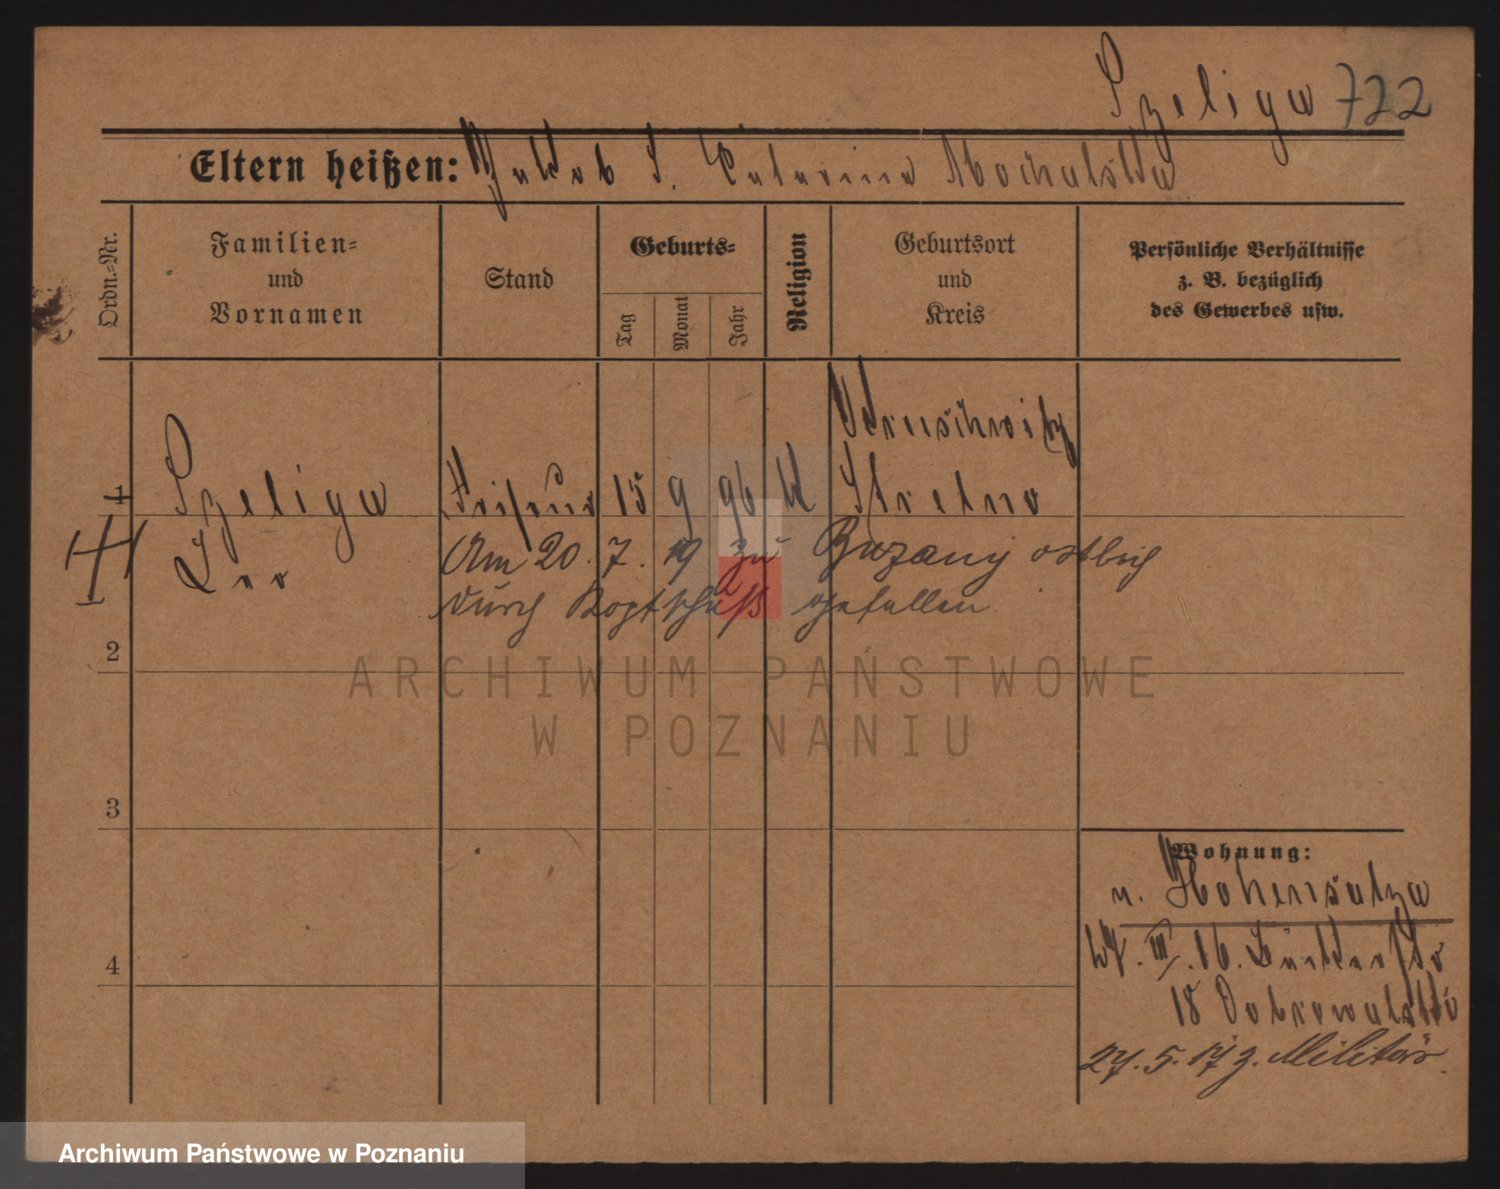 Szeliga 722
Eltern heißen: Jakob S. Catarina Mochalska
Ordn.-Nr.
Familien-
und
Vornamen
Stand
Geburts-
Tag
Monat
Jahr
Religion
Geburtsort
und
Kreis
Persönliche Verhältnisse
z. B. bezüglich
des Gewerbes usw.
Kruschwitz
1 Szeliga Friseur 15 9 96 K Strelno
Leo
Am 20. 7. 19 zu Buzany östlich
durch Kopfschuß gefallen.
2
3
4
Wohnung:
n. Hohensalza
27. III. 16. Bäckerstr
18 Dobrowolski
27. 5. 17 z. Militär.
ARCHIWUM PAŃSTWOWE
W POZNANIU
Archiwum Państwowe w Poznaniu